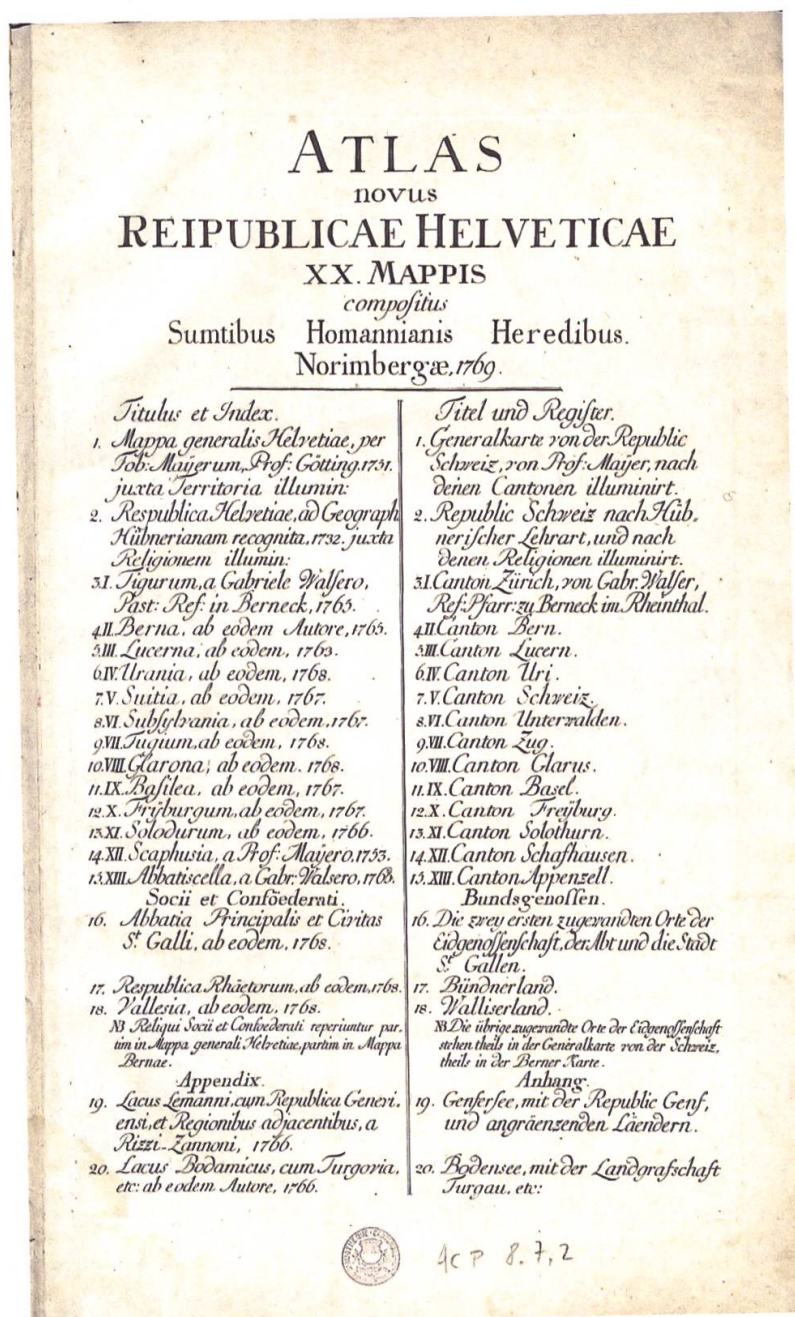 ATLAS
novus
REIPUBLICAE HELVETICAE
XX. MAPPIS
compoſitus
Sumtibus Homannianis Heredibus.
Norimbergæ, 1769.
Titulus et Index.
1. Mappa generalis Helvetiae, per
Tob: Maÿerum, Prof: Götting. 1751.
juxta Territoria illumin:
2. Respublica Helvetiae, ad Geograph
Hübnerianam recognita, 1732. juxta
Religionem illumin:
3.I. Tigurum, a Gabriele Walsero,
Past: Ref: in Berneck, 1765.
4.II. Berna, ab eodem Autore, 1765.
5.III. Lucerna, ab eodem, 1763.
6.IV. Urania, ab eodem, 1768.
7.V. Suitia, ab eodem, 1767.
8.VI. Subſylvania, ab eodem, 1767.
9.VII. Tugium, ab eodem, 1768.
10.VIII. Glarona, ab eodem. 1768.
11.IX. Baſilea, ab eodem, 1767.
12.X. Frÿburgum, ab eodem, 1767.
13.XI. Solodurum, ab eodem, 1766.
14.XII. Scaphusia, a Prof: Maÿero, 1753.
15.XIII. Abbatiscella, a Gabr: Walsero, 1768.
Socii et Confoederati.
16. Abbatia Principalis et Civitas
St. Galli, ab eodem, 1768.
17. Respublica Rhaetorum, ab eodem, 1768.
18. Vallesia, ab eodem, 1768.
NB Reliqui Socii et Confoederati reperiuntur par-
tim in Mappa generali Helvetiae, partim in Mappa
Bernae.
Appendix.
19. Lacus Lemanni, cum Republica Genevi-
ensi, et Regionibus adjacentibus, a
Rizzi-Zannoni, 1766.
20. Lacus Bodamicus, cum Turgovia,
etc: ab eodem Autore, 1766.
Titel und Regiſter.
1. Generalkarte von der Republic
Schweiz, von Prof: Maÿer, nach
denen Cantonen illuminirt.
2. Republic Schweiz nach Hüb-
neriſcher Lehrart, und nach
denen Religionen illuminirt.
3.I. Canton Zürich, von Gabr: Walser,
Ref: Pfarr: zu Berneck im Rheinthal.
4.II. Canton Bern.
5.III. Canton Lucern.
6.IV. Canton Uri.
7.V. Canton Schweiz.
8.VI. Canton Unterwalden.
9.VII. Canton Zug.
10.VIII. Canton Glarus.
11.IX. Canton Basel.
12.X. Canton Freÿburg.
13.XI. Canton Solothurn.
14.XII. Canton Schafhausen.
15.XIII. Canton Appenzell.
Bundsgenoſſen.
16. Die zweÿ ersten zugewandten Orte der
Eidgenoſſenſchaft, der Abt und die Stadt
St. Gallen.
17. Bündnerland.
18. Walliserland.
NB. Die übrige zugewandte Orte der Eidgenoſſenſchaft
stehen theils in der Generalkarte von der Schweiz,
theils in der Berner Karte.
Anhang.
19. Genfersee, mit der Republic Genf,
und angräenzenden Läendern.
20. Bodensee, mit der Landgrafschaft
Turgau, etc:
4c P 8.7,2